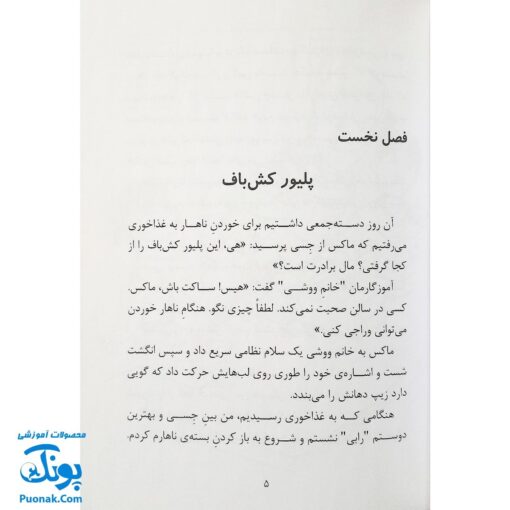 فصل نخست
پلیور کش‌باف
آن روز دسته‌جمعی داشتیم برای خوردنِ ناهار به غذاخوری
می‌رفتیم که ماکس از جِسی پرسید: «هی، این پلیور کش‌باف را از
کجا گرفتی؟ مال برادرت است؟»
آموزگارمان "خانمِ ووشی" گفت: «هیس! ساکت باش، ماکس.
کسی در سالن صحبت نمی‌کند. لطفاً چیزی نگو. هنگامِ ناهار خوردن
می‌توانی وراجی کنی.»
ماکس به خانم ووشی یک سلام نظامی سریع داد و سپس انگشت
شست و اشاره‌ی خود را طوری روی لب‌هایش حرکت داد که گویی
دارد زیپ دهانش را می‌بندد.
هنگامی که به غذاخوری رسیدیم، من بینِ جِسی و بهترین
دوستم "رابی" نشستم و شروع به باز کردنِ بسته‌ی ناهارم کردم.
۵
محصولات آموزشی
پونک
Puonak.Com